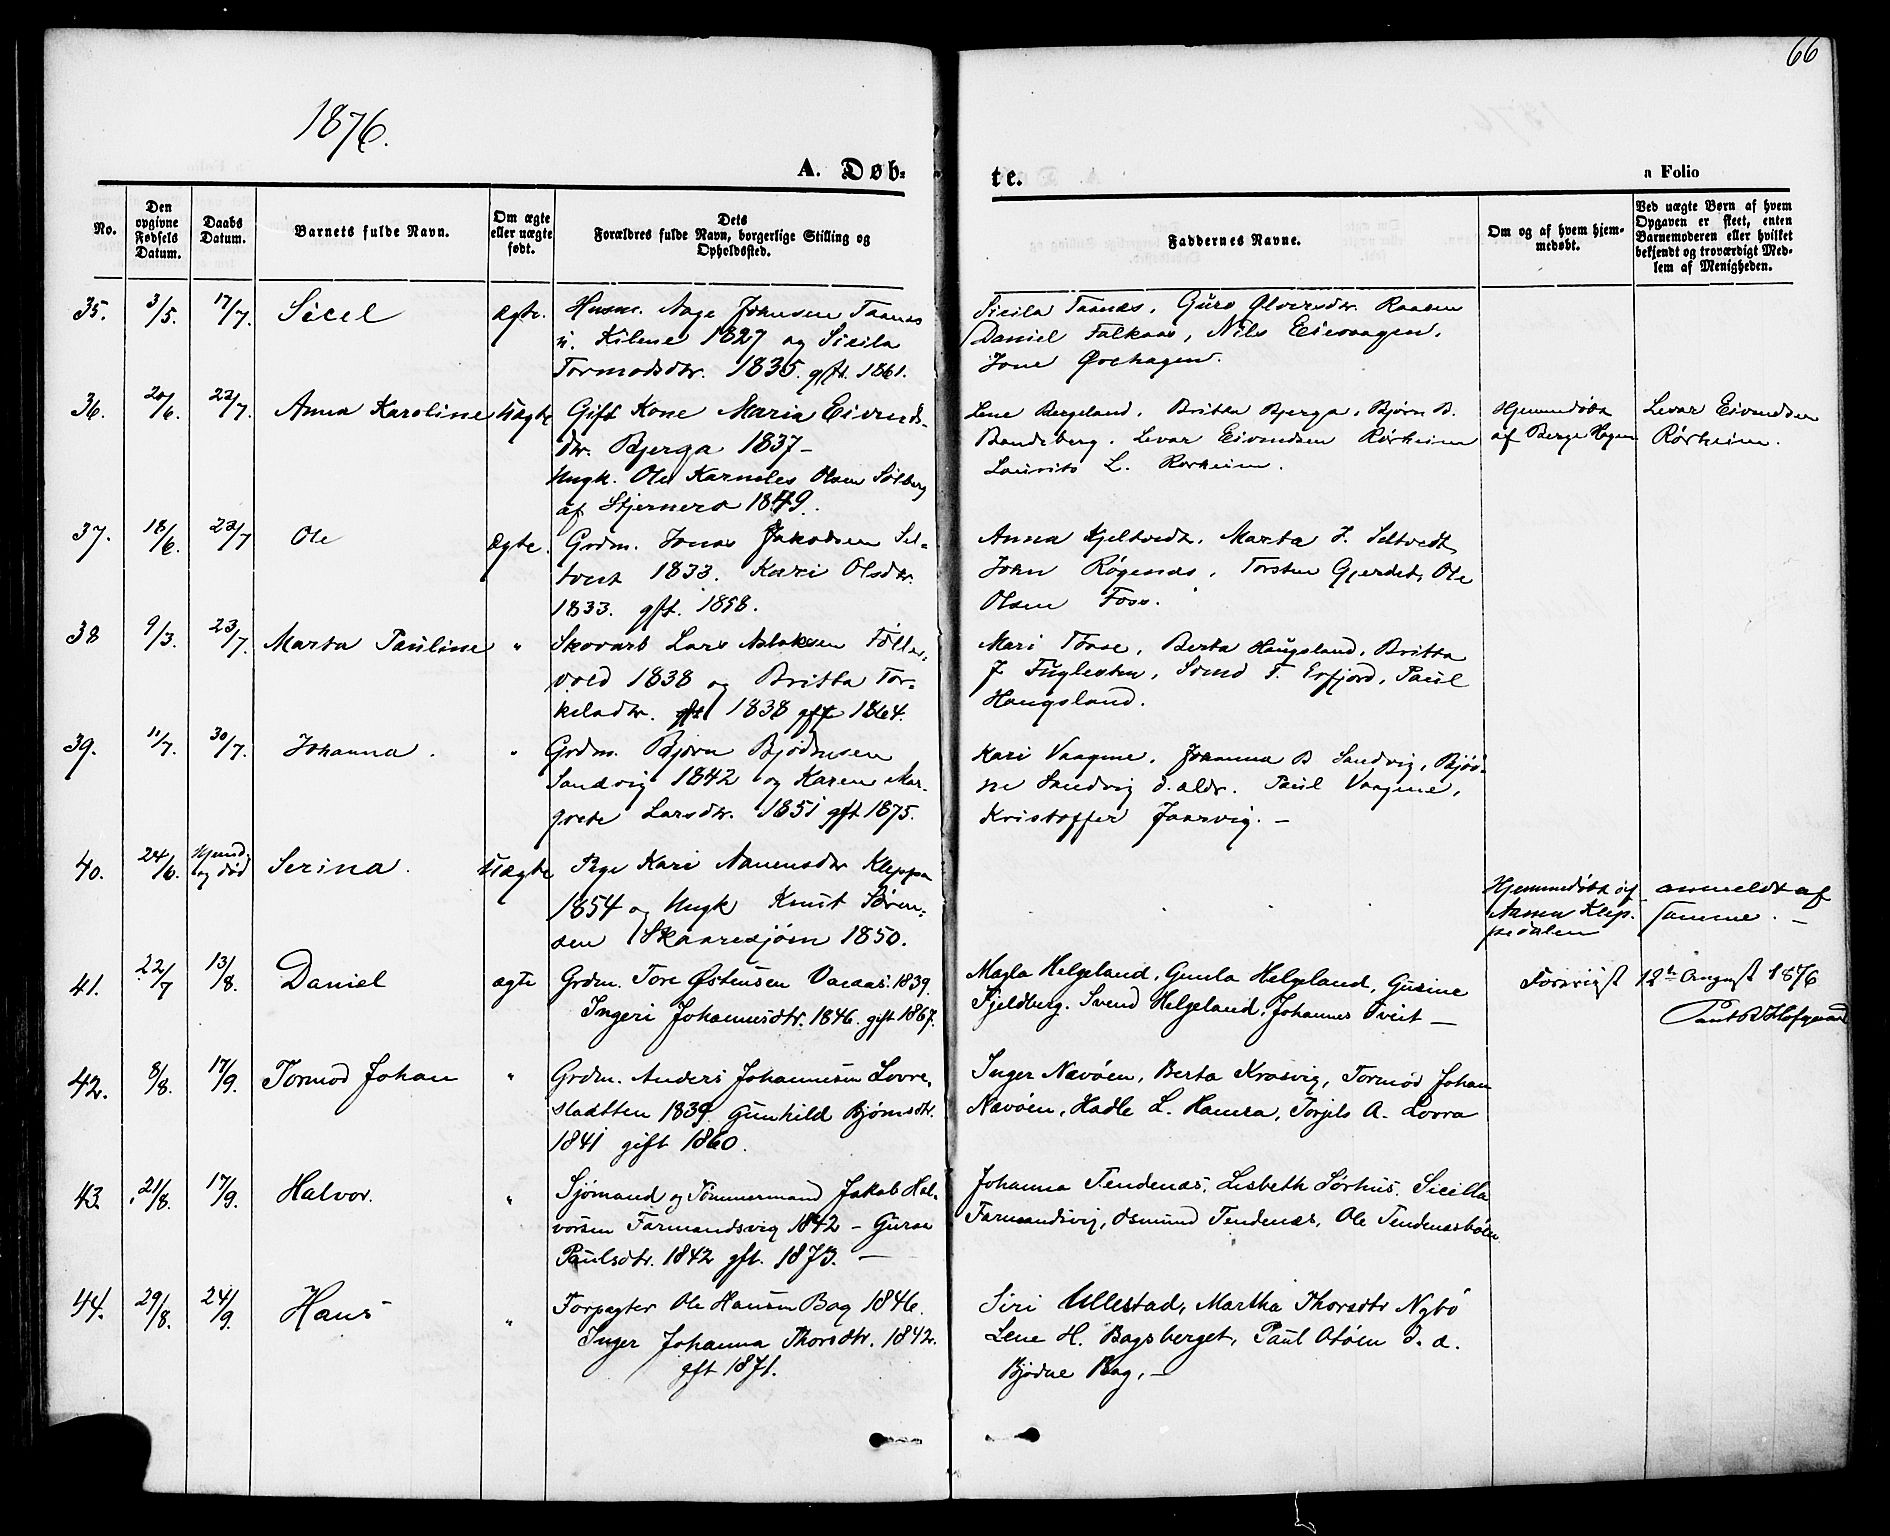 66
1876.
A. Døb-
te.
a Folio
No.
Den opgivne Fødsels Datum.
Daabs Datum.
Barnets fulde Navn.
Om ægte eller uægte født.
Dets Forældres fulde Navn, borgerlige Stilling og Opholdssted.
Faddernes Navne.
Om og af hvem hjemmedøbt.
Ved uægte Børn af hvem Opgaven er skeet, enten Barnemoderen eller hvilket bekjendt og troværdigt Medlem af Menigheden.
35. 3/5. 17/7. Sicel ægte.
Husm. Aage Johnsen Taanes
u. Kilene 1827 og Sicila
Tormodsdtr. 1835. gft. 1861.
Sicila Taanes, Guro Olversdtr.
Daniel Falkaas, Nils Eiesvaagen,
Jone
36. 20/6. 22/7. Anna Karoline Uægte
Gift Kone Maria Eivends-
dtr. Bjerga 1837 -
Ungk. Ole Karneles Olsen Solberg
af Stjernerø 1849.
Lene Bergeland, Britta Bjerga, Bjørn B.
Levar Eivendsen Rørheim
Laurits L. Rørheim.
Hjemmedøbt
af Berge Hagen
Levar Eivendsen
Rørheim.
37. 18/6. 23/7 Ole Ægte.
Grdm. Jonas Jakobsen Sel-
tveit 1833. Kari Olsdtr.
1833. gft. 1858.
Anna Hjeltvedt, Marta J. Seltvedt,
John Røgenæs, Torsten Gjerdet, Ole
Olsen Foss.
38 9/3. 23/7. Marta Pauline "
Lars Aslaksen
vold 1838 og Britta Tor-
kelsdtr. gft 1838 gft 1864.
Mari Berta Haugsland, Britta
J Fuglesten, Svend T. Erfjord, Paul
Haugsland.
39. 11/7. 30/7. Johanna. "
Grdm. Bjørn Bjødnsen
Sandvig 1842 og Karen Mar-
grete Larsdtr. 1851 gft 1875.
Kari Vaagene, Johanna B Sandvig, Bjød-
ne Sandvig d. ældr. Paul Vaagene,
Kristoffer Jaarvig. -
40. 24/6. Hjemd. og død Serina. Uægte
Pige Kari Aanensdtr Kleppa
1854 og Ungk Knut Søren-
sen Skaaresjøen 1850.
Hjemmedøbt af
Anna Klep-
anmeldt af
samme. -
41. 22/7 13/8. Daniel ægte
Grdm. Tore Østensen Varaas. 1839.
Ingeri Johannesdtr. 1846. gift 1867.
Magla Helgeland, Gunla Helgeland, Gurine
Fjeldberg. Svend Helgeland, Johannes Tveit -
12te August 1876
42. 8/8. 17/9. Tormod Johan "
Grdm. Anders Johannesen Lovre-
sladtten 1839. Gunhild Bjørnsdtr.
1841 gift 1860.
Inger Nævøen, Berta Krosvig, Tormod Johan
Nævøen, Hadle L. Hamra, Torjels A. Lovra
43. 21/8. 17/9. Halvor. "
Sjømand og Tømmermand Jakob Hal-
vorsen Farmandsvig 1842 - Guroe
Paulsdtr. 1842 gft. 1873. -
Johanna Tendenæs, Lisbeth Sørhus. Sicilla
Farmandsvig, Osmund Tendenæs, Ole Tendenæsbøen
44. 29/8. 24/9. Hans "
Forpagter Ole Hansen Bag 1846.
Inger Johanna Thorsdtr. 1842.
gft 1871.
Siri Ullestad, Martha Thorsdtr Nybø
Lene H. Bagsberget, Paul
Bjødne Bag, -